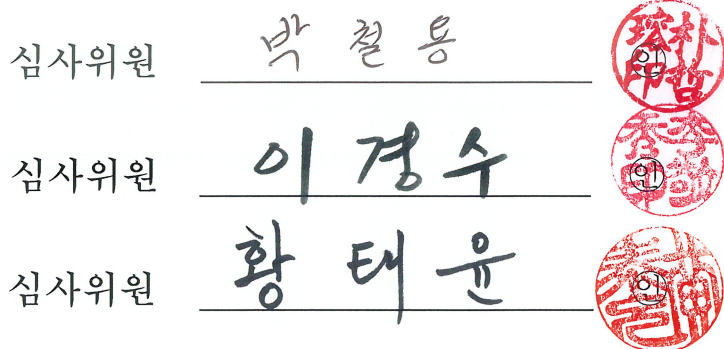 심사위원 박철용 인
심사위원 이경수 인
심사위원 황태윤 인